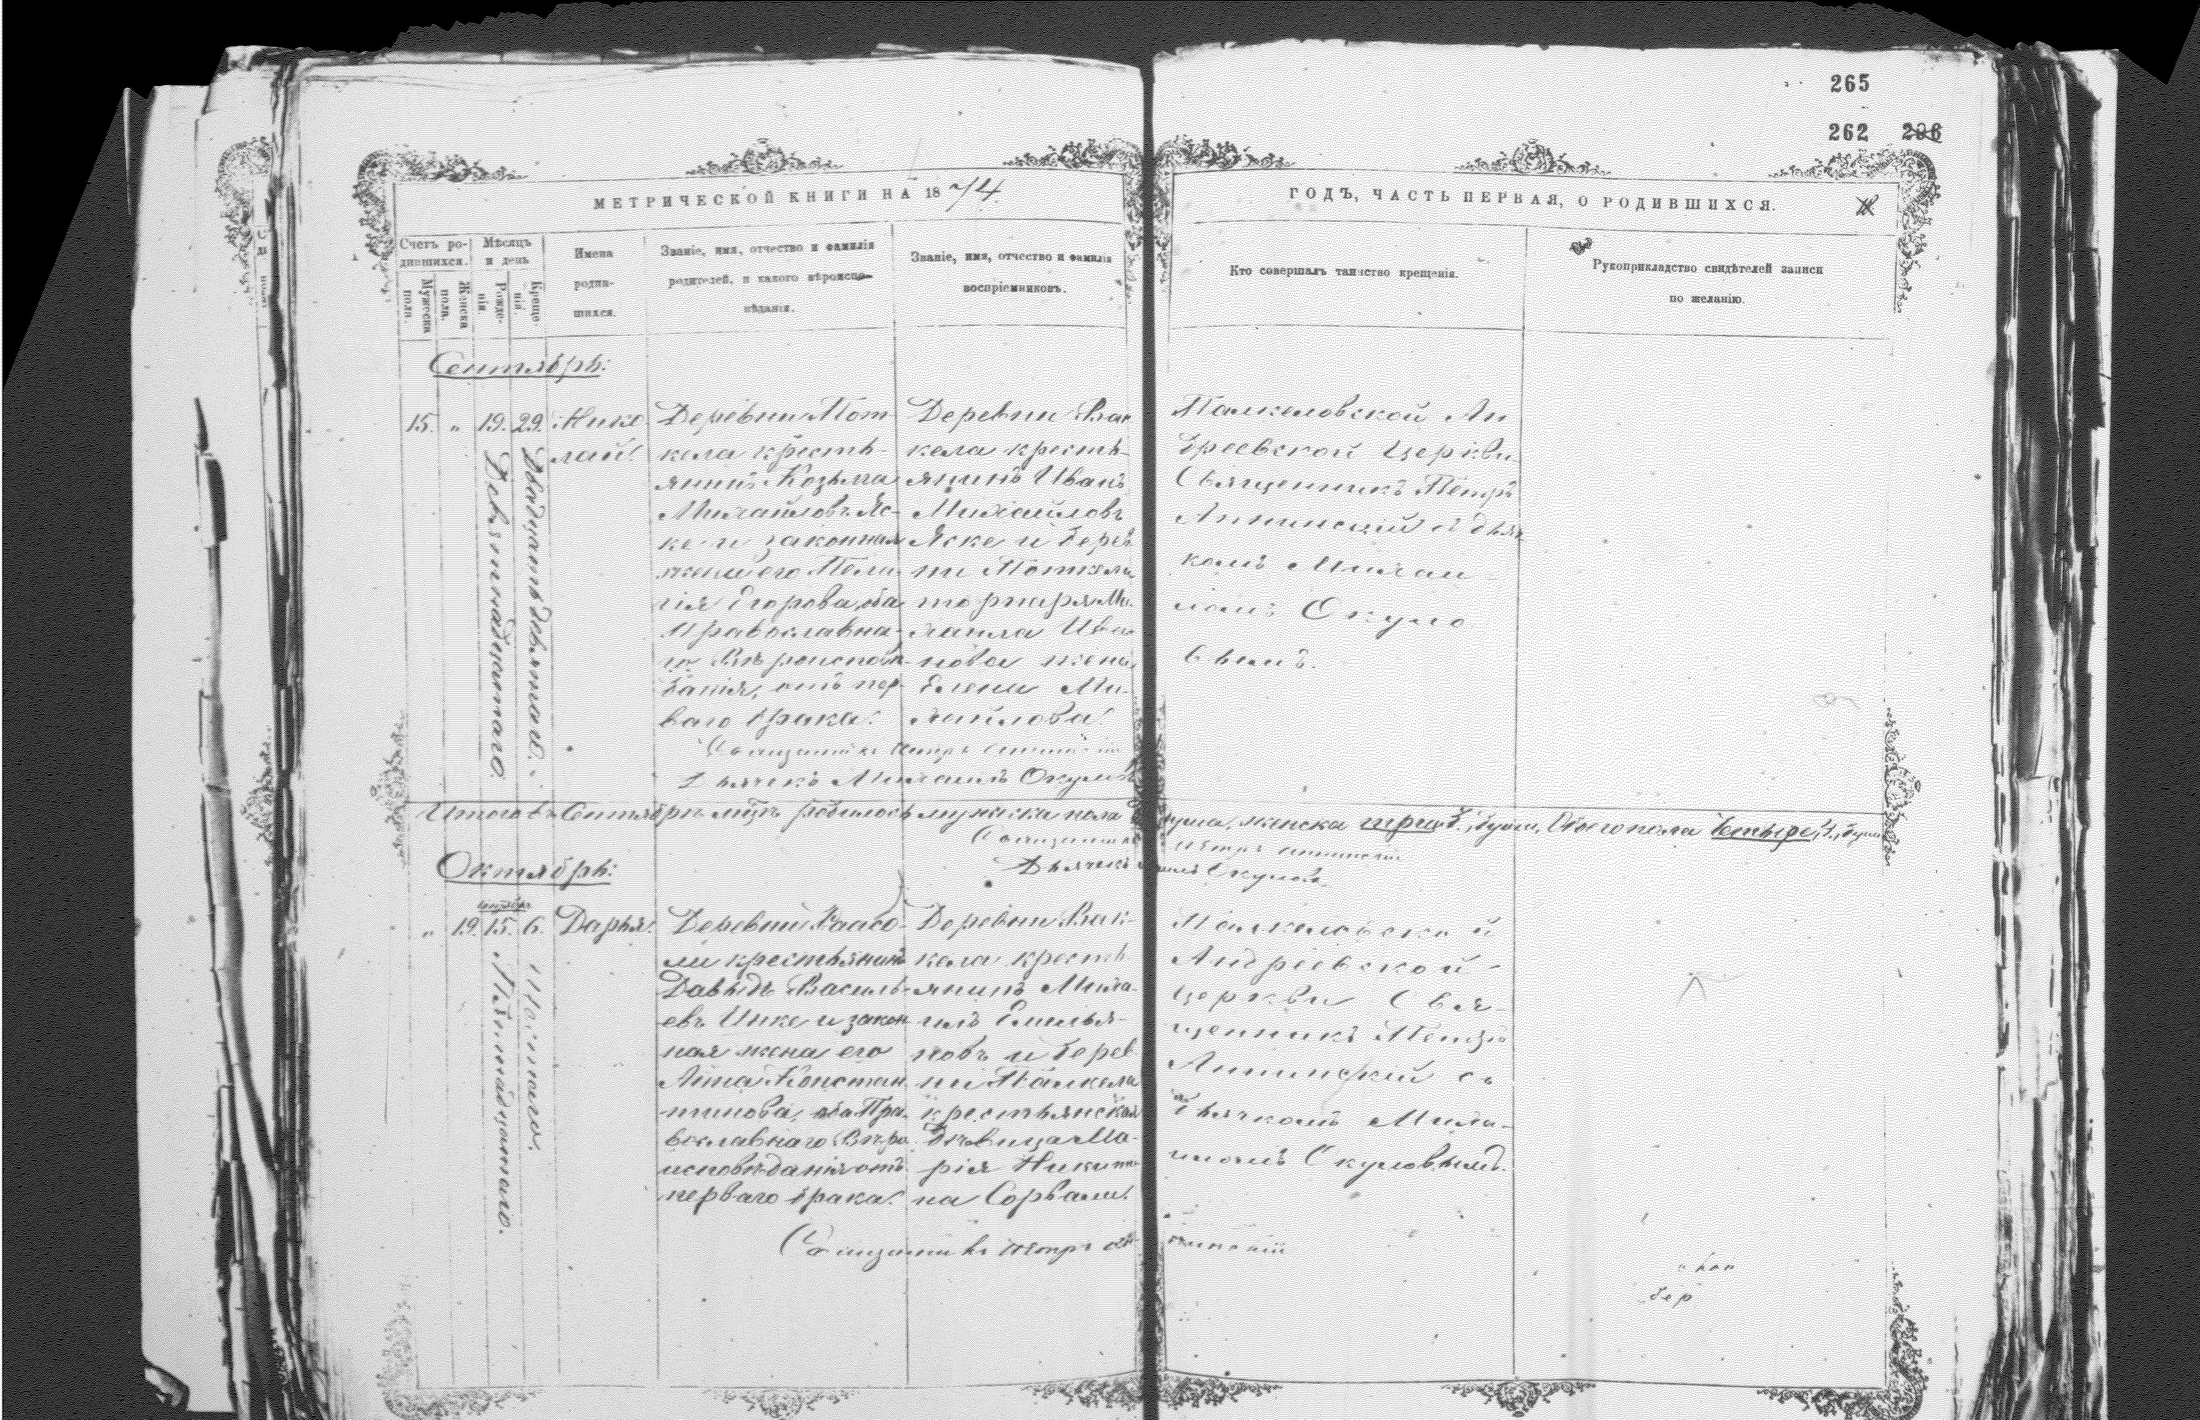 265
262 206
МЕТРИЧЕСКОЙ КНИГИ НА 1874.
ГОДЪ, ЧАСТЬ ПЕРВАЯ, О РОДИВШИХСЯ.
Счетъ родившихся.
Мужеска пола.
Женска пола.
Мѣсяцъ и день
Рожденія.
Крещенія.
Имена родившихся.
Званіе, имя, отчество и фамилія
родителей, и какого вѣроиспо-
вѣданія.
Званіе, имя, отчество и фамилія
воспріемниковъ.
Кто совершалъ таинство крещенія.
Рукоприкладство свидѣтелей записи
по желанію.
Сентябрь:
15. " 19. 29.
Девятнадцатаго.
Двадцать девятаго.
Нико-
лай.
Деревни Пот-
кела кресть-
янинъ Козьма
Михайловъ Яс-
ке и законная
жена его Пела-
гія Егорова, оба
православна-
го Вѣроисповѣ-
данія, отъ пер-
ваго брака.
Деревни Вак-
кела кресть-
янинъ Иванъ
Михайловъ
Яске и дерев-
ни
Ми-
хаила Ива-
нова жена
Елена Ми-
хайлова.
Андреевской Церкви
Священникъ Петръ
Аннинскій съ дьяч-
комъ Михаи-
ломъ Окуло-
вымъ.
Священникъ Петръ Аннинскій
Дьячекъ Михаилъ Окуловъ
Итого въ Сентябрѣ мцѣ родилось мужеска пола душа, женска три 3. души, Обоего пола четыре, 4., души
Священникъ Петръ Аннинскій
Дьячекъ Михаилъ Окуловъ.
Октябрь:
" 19. 15. 6.
Пятнадцатаго.
Шестаго.
Дарья.
Деревни
крестьянинъ
Давыдъ Василь-
евъ Инке и закон-
ная жена его
Анна Констан-
тинова, оба Пра-
вославнаго Вѣро-
исповѣданія отъ
перваго брака.
Деревни Вак-
кела кресть-
янинъ Миха-
илъ Емелья-
новъ и дерев-
ни Палкела
крестьянская
дѣвица Ма-
рія Никити-
на Сорвали.
Андреевской
церкви Свя-
щенникъ Петръ
Аннинскій съ
дьячкомъ Миха-
иломъ Окуловымъ.
Священникъ Петръ Аннинскій